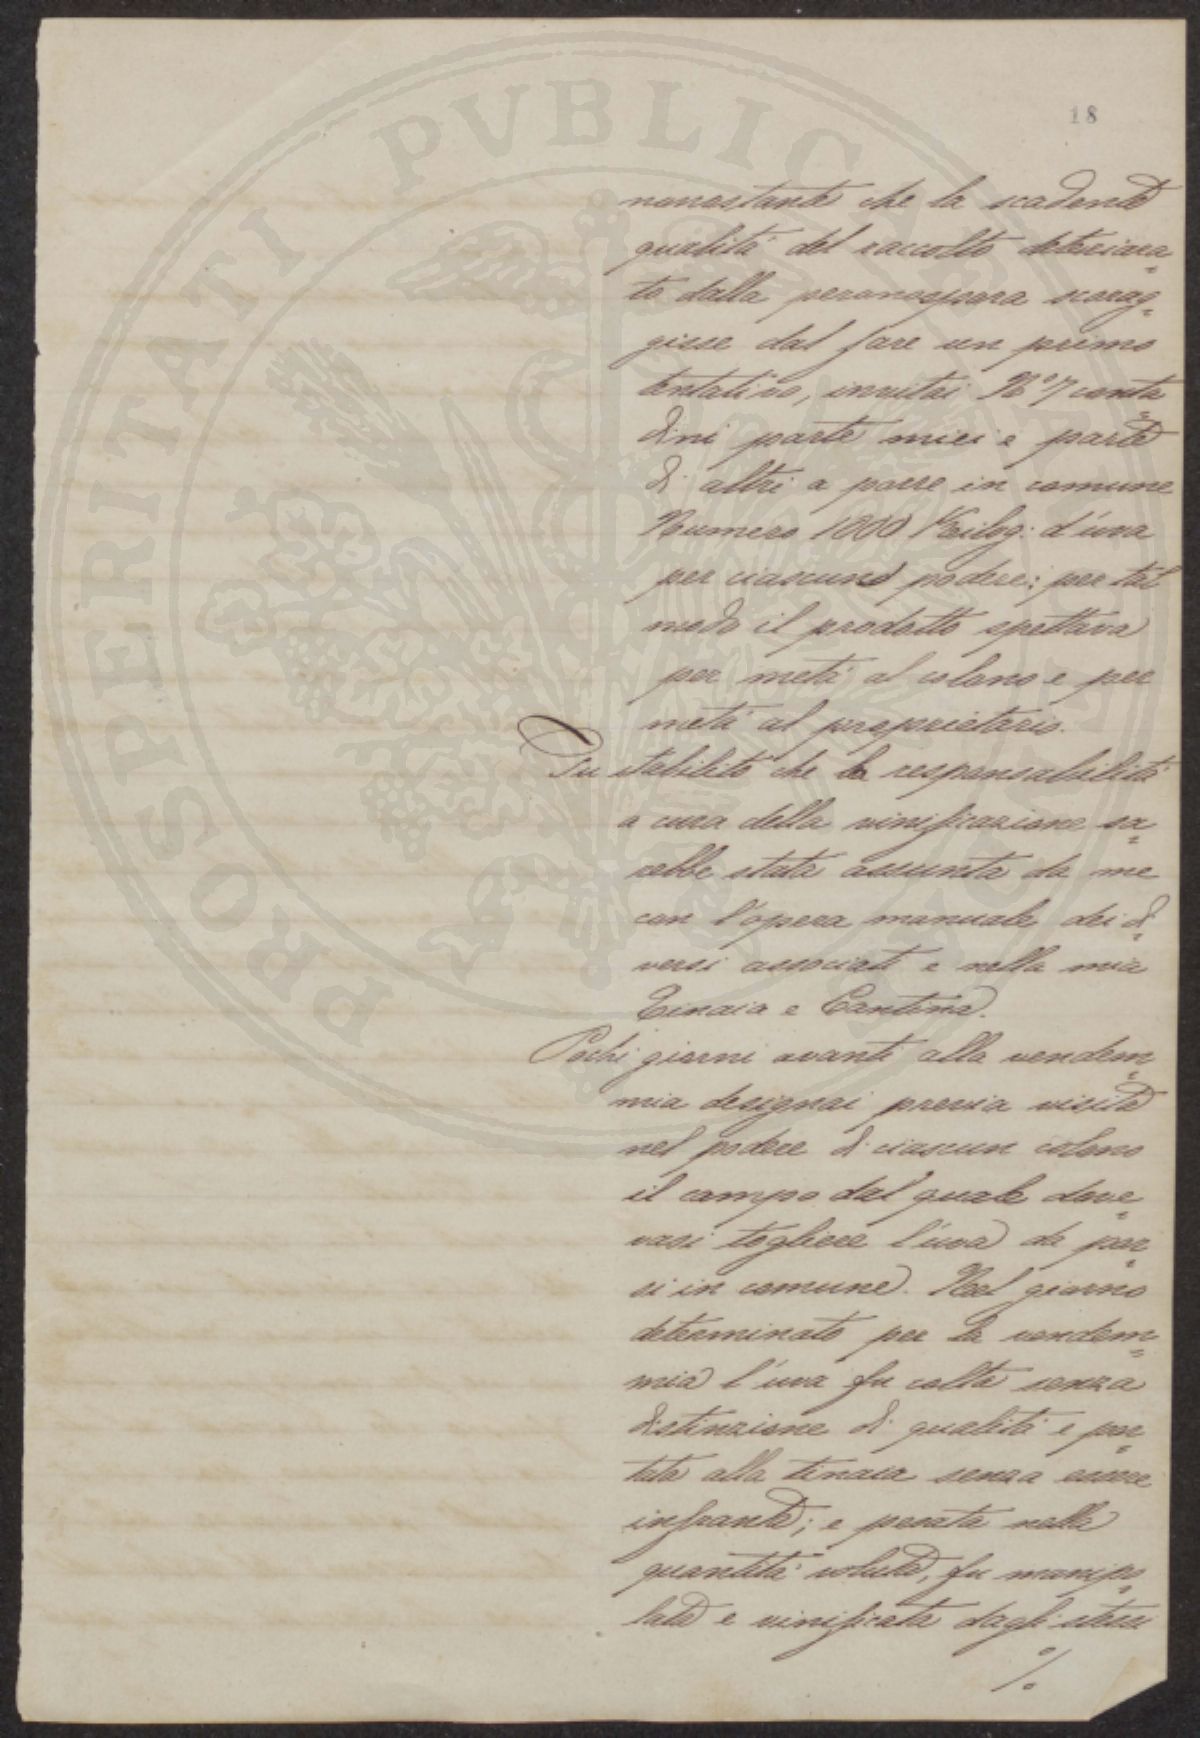 18
nonostante che la scadente
qualità del raccolto deteriora=
to dalla peronospora scorag=
gisse dal fare un primo
tentativo, invitai N.° 7 conta=
dini parte miei e parte
di altri a porre in comune
Numero 1000 Kilog: d'uva
per ciascuno podere; per tal
modo il prodotto spettava
per metà al colono e per
metà al proprietario.
Fu stabilito che la responsabilità
a cura della vinificazione sa=
rebbe stata assunta da me
con l'opera manuale dei di=
versi associati e nella mia
Tinaia e Cantina.
Pochi giorni avanti alla vendem=
mia designai previa visita
nel podere di ciascun colono
il campo dal quale dove=
vasi togliere l'uva da por=
si in comune. Nel giorno
determinato per la vendem=
mia l'uva fu colta senza
distinzione di qualità e por=
tata alla tinaia senza essere
infranta; e pesata nella
quantità voluta, fu manipo=
lata e vinificata dagli stessi
%
PROSPERITATI PVBLICAE